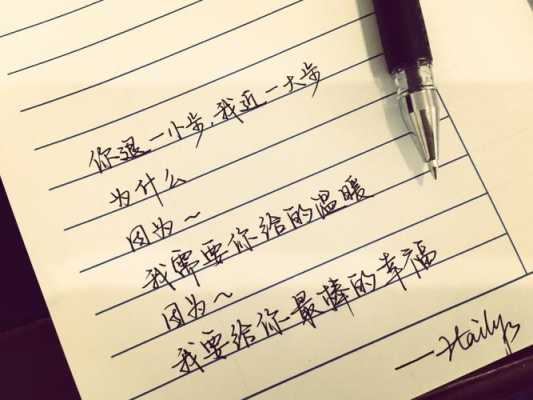 你退一小步,我近一大步
为什么
因为~
我需要你给的温暖
因为~
我要给你最棒的幸福